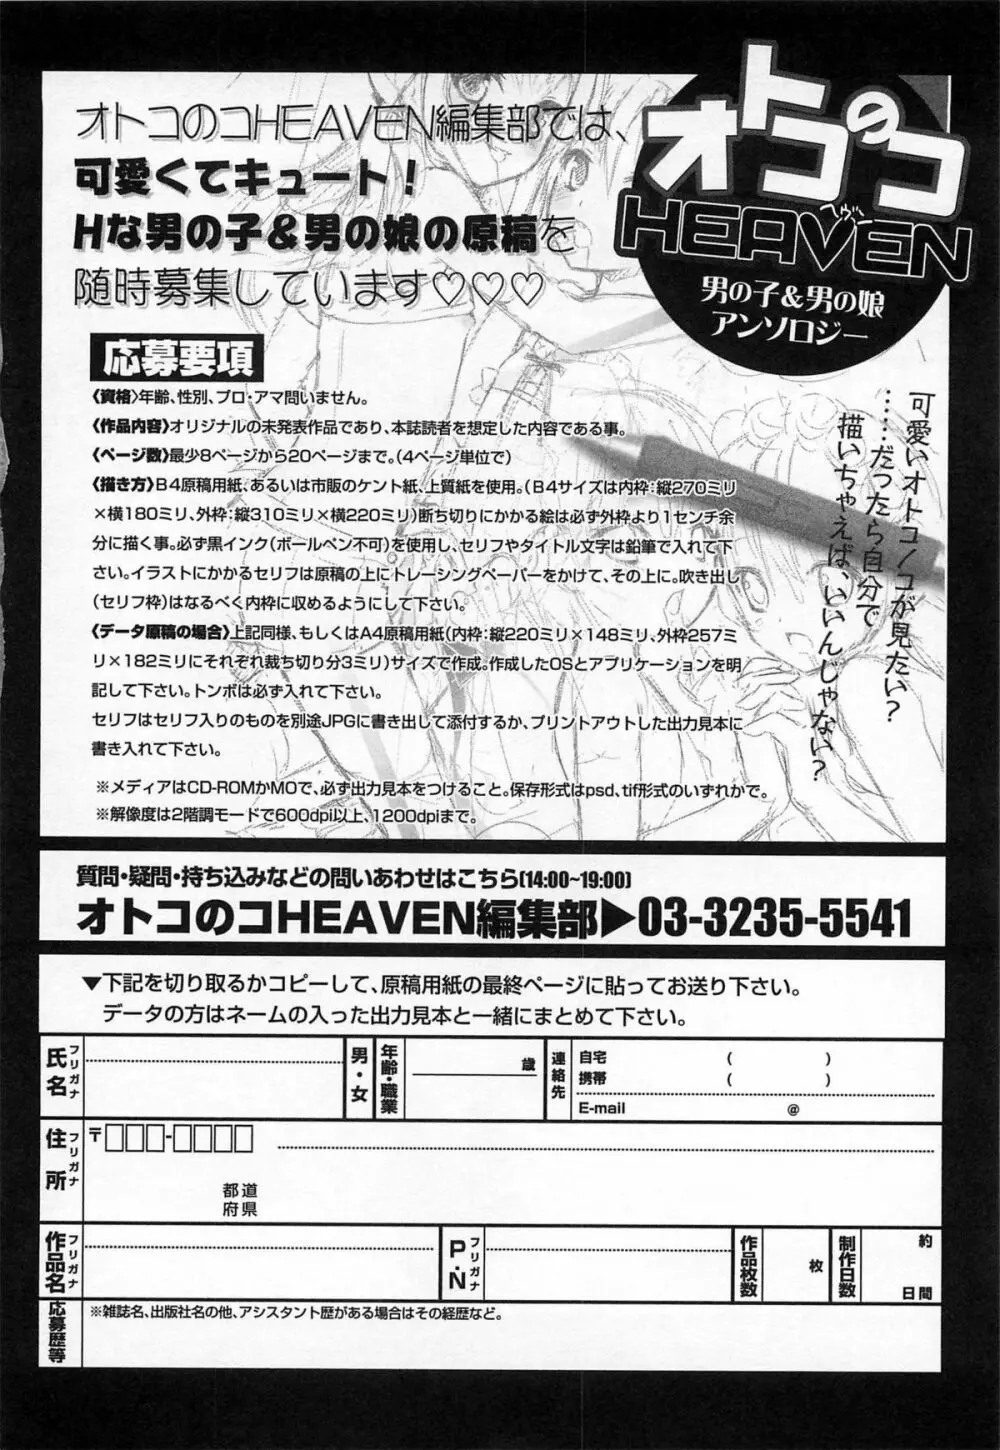 オトコのコHEAVEN編集部では、
可愛くてキュート！
Hな男の子＆男の娘の原稿を
随時募集しています♡♡♡
オトコのコ
ヘヴン
HEAVEN
男の子＆男の娘
アンソロジー
可愛いオトコノコが見たい？
……だったら自分で
描いちゃえば、いいんじゃない？
応募要項
〈資格〉年齢、性別、プロ・アマ問いません。
〈作品内容〉オリジナルの未発表作品であり、本誌読者を想定した内容である事。
〈ページ数〉最少8ページから20ページまで。（4ページ単位で）
〈描き方〉B4原稿用紙、あるいは市販のケント紙、上質紙を使用。（B4サイズは内枠：縦270ミリ
×横180ミリ、外枠：縦310ミリ×横220ミリ）断ち切りにかかる絵は必ず外枠より1センチ余
分に描く事。必ず黒インク（ボールペン不可）を使用し、セリフやタイトル文字は鉛筆で入れて下
さい。イラストにかかるセリフは原稿の上にトレーシングペーパーをかけて、その上に。吹き出し
（セリフ枠）はなるべく内枠に収めるようにして下さい。
〈データ原稿の場合〉上記同様、もしくはA4原稿用紙（内枠：縦220ミリ×148ミリ、外枠257ミ
リ×182ミリにそれぞれ裁ち切り分3ミリ）サイズで作成。作成したOSとアプリケーションを明
記して下さい。トンボは必ず入れて下さい。
セリフはセリフ入りのものを別途JPGに書き出して添付するか、プリントアウトした出力見本に
書き入れて下さい。
※メディアはCD-ROMかMOで、必ず出力見本をつけること。保存形式はpsd、tif形式のいずれかで。
※解像度は2階調モードで600dpi以上、1200dpiまで。
質問・疑問・持ち込みなどの問いあわせはこちら(14:00~19:00)
オトコのコHEAVEN編集部▶03-3235-5541
▼下記を切り取るかコピーして、原稿用紙の最終ページに貼ってお送り下さい。
データの方はネームの入った出力見本と一緒にまとめて下さい。
氏名 フリガナ
男・女
年齢・職業
歳
連絡先
自宅 （ ）
携帯 （ ）
E-mail @
住所 フリガナ
〒□□□-□□□□
都道
府県
作品名 フリガナ
P・N フリガナ
作品枚数
枚
制作日数
約
日間
応募歴等
※雑誌名、出版社名の他、アシスタント歴がある場合はその経歴など。